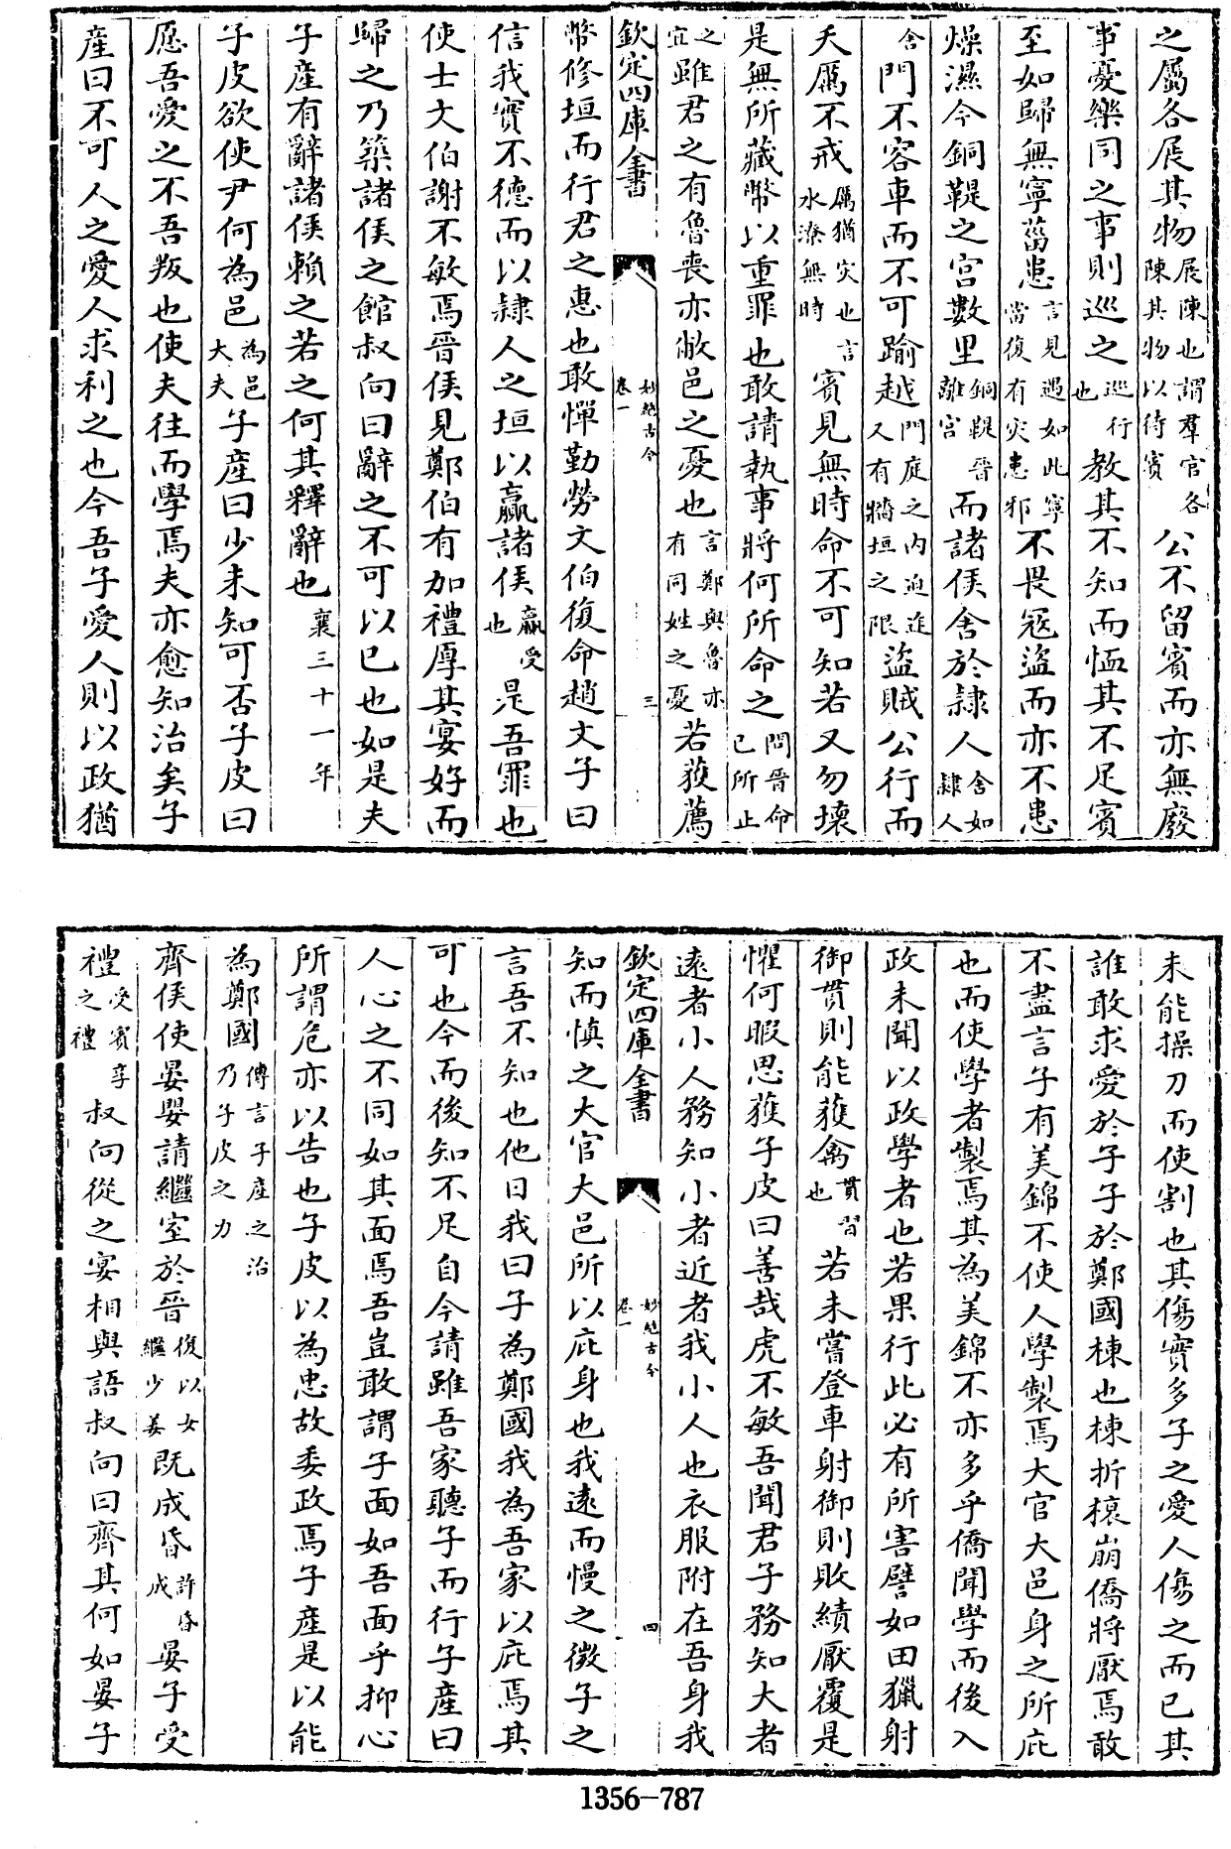 之屬各展其物展陳也謂羣官各陳其物以待賓公不留賓而亦無廢
事憂樂同之事則巡之巡行也教其不知而恤其不足賓
至如歸無寧菑患言見遇如此寧當復有災患邪不畏冦盜而亦不患
燥濕今銅鞮之宮數里銅鞮晉離宮而諸侯舍於隷人舍如隷人
舍門不容車而不可踰越門庭之内迫迮又有牆垣之限盜賊公行而
夭厲不戒厲猶災也言水潦無時賓見無時命不可知若又勿壞
是無所藏幣以重罪也敢請執事將何所命之問晉命已所止
之宜雖君之有魯喪亦敝邑之憂也言鄭與魯亦有同姓之憂若獲薦
欽定四庫全書
妙絶古今
卷一
三
幣修垣而行君之惠也敢憚勤勞文伯復命趙文子曰
信我實不德而以隷人之垣以贏諸侯贏受也是吾罪也
使士文伯謝不敏焉晉侯見鄭伯有加禮厚其宴好而
歸之乃築諸侯之館叔向曰辭之不可以已也如是夫
子產有辭諸侯賴之若之何其釋辭也襄三十一年
子皮欲使尹何為邑為邑大夫子產曰少未知可否子皮曰
愿吾愛之不吾叛也使夫往而學焉夫亦愈知治矣子
產曰不可人之愛人求利之也今吾子愛人則以政猶
未能操刀而使割也其傷實多子之愛人傷之而已其
誰敢求愛於子子於鄭國棟也棟折榱崩僑將厭焉敢
不盡言子有美錦不使人學製焉大官大邑身之所庇
也而使學者製焉其為美錦不亦多乎僑聞學而後入
政未聞以政學者也若果行此必有所害譬如田獵射
御貫則能獲禽貫習也若未嘗登車射御則敗績厭覆是
懼何暇思獲子皮曰善哉虎不敏吾聞君子務知大者
遠者小人務知小者近者我小人也衣服附在吾身我
欽定四庫全書
妙絶古今
卷一
四
知而慎之大官大邑所以庇身也我遠而慢之微子之
言吾不知也他日我曰子為鄭國我為吾家以庇焉其
可也今而後知不足自今請雖吾家聽子而行子產曰
人心之不同如其面焉吾豈敢謂子面如吾面乎抑心
所謂危亦以告也子皮以為忠故委政焉子產是以能
為鄭國傳言子產之治乃子皮之力
齊侯使晏嬰請繼室於晉復以女繼少姜既成昏許昏成晏子受
禮受賓享之禮叔向從之宴相與語叔向曰齊其何如晏子
1356-787